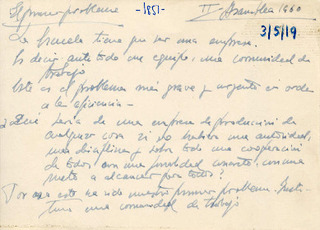 El primer problema -1851- II Asamblea 1960
3/5/19
La Escuela tiene que ser una empresa.
Es decir ante todo un equipo, una comunidad de
trabajo
Este es el problema más grave y urgente en orden
a la eficiencia -
¿Qué sería de una empresa de producción de
cualquier cosa si no hubiera una autoridad,
una disciplina y sobre todo una cooperación
de todos con una finalidad concreta, con una
meta a alcanzar por todos?
Por eso este ha sido nuestro primer problema. Insti-
tuir una comunidad de trabajo